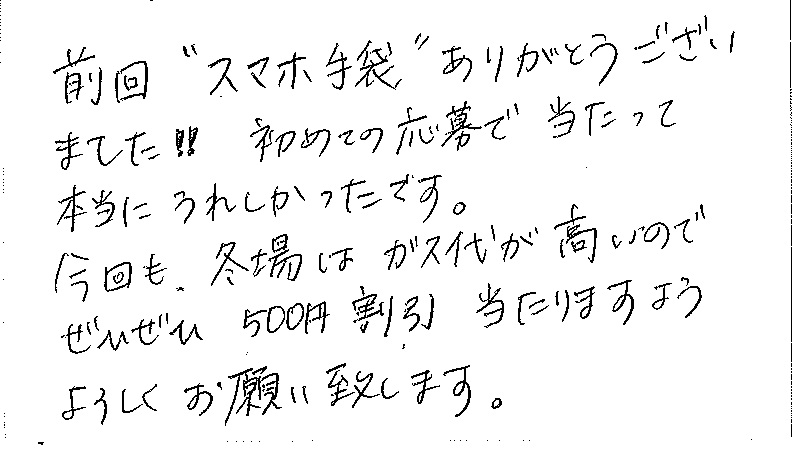 前回“スマホ手袋”ありがとうござい
ました!! 初めての応募で 当たって
本当に うれしかったです。
今回も、冬場は ガス代が 高いので
ぜひぜひ 500円 割引 当たりますよう
よろしく お願い 致します。